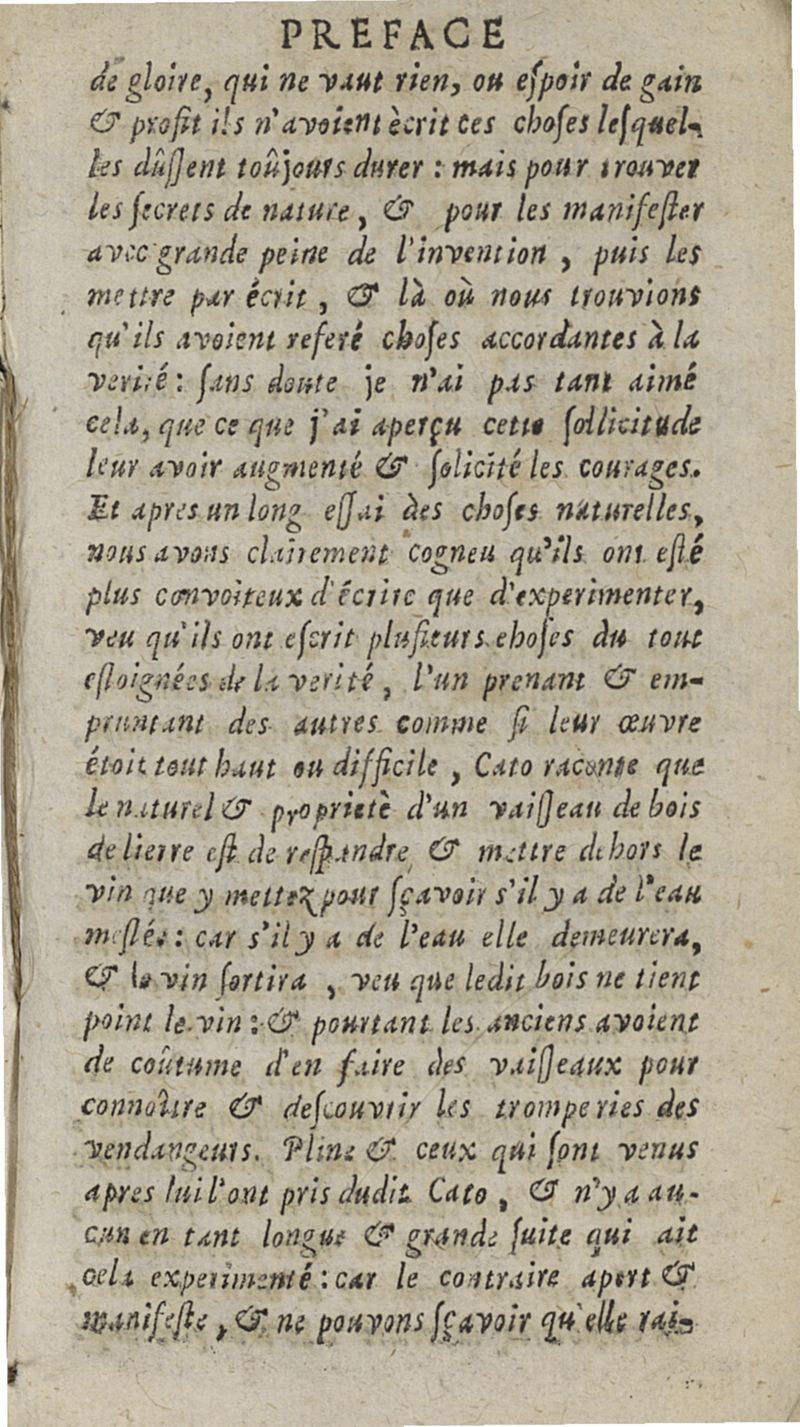 PREFACE
de gloire, qui ne vaut rien, ou eſpoir de gain
& profit ils n'avoient ècrit ces choſes leſquel-
les dûſſent toûjours durer : mais pour trouver
les ſecrets de nature, & pour les manifeſter
avec grande peine de l'invention, puis les
mettre par écrit, & là où nous trouvions
qu'ils avoient referé choſes accordantes à la
verité : ſans doute je n'ai pas tant aimé
cela, que ce que j'ai aperçu cette ſollicitude
leur avoir augmenté & ſolicité les courages.
Et apres un long eſſai des choſes naturelles,
nous avons clairement cogneu qu'ils ont eſté
plus convoiteux d'écrire que d'experimenter,
veu qu'ils ont eſcrit pluſieurs choſes du tout
eſloignées de la verité, l'un prenant & em-
pruntant des autres comme ſi leur œuvre
étoit tout haut ou difficile, Cato raconte que
le naturel & proprietè d'un vaiſſeau de bois
de lierre eſt de reſpandre & mettre dehors le
vin que y mettez pour ſçavoir s'il y a de l'eau
meſlée : car s'il y a de l'eau elle demeurera,
& le vin ſortira, veu que ledit bois ne tient
point le vin : & pourtant les anciens avoient
de coûtume d'en faire des vaiſſeaux pour
connoître & deſcouvrir les tromperies des
vendangeurs. Pline & ceux qui ſont venus
apres lui l'ont pris dudit Cato, & n'y a au-
cun en tant longue & grande ſuite qui ait
cela experimenté : car le contraire apert &
manifeſte, & ne pouvons ſçavoir qu'elle rai-